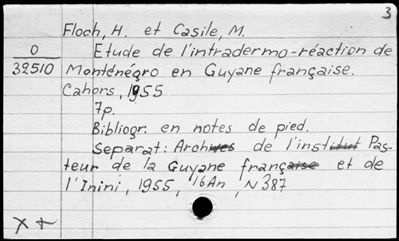 3
Floch, H. et Casile, M.
O Etude de l'intradermo-réaction de
32510 Monténégro en Guyane française.
Cahors, 1955
7p.
Bibliogr. en notes de pied.
Separat: Archives de l'institut Pas-
teur de la Guyane française et de
l'Inini, 1955, 16An, N387
X +